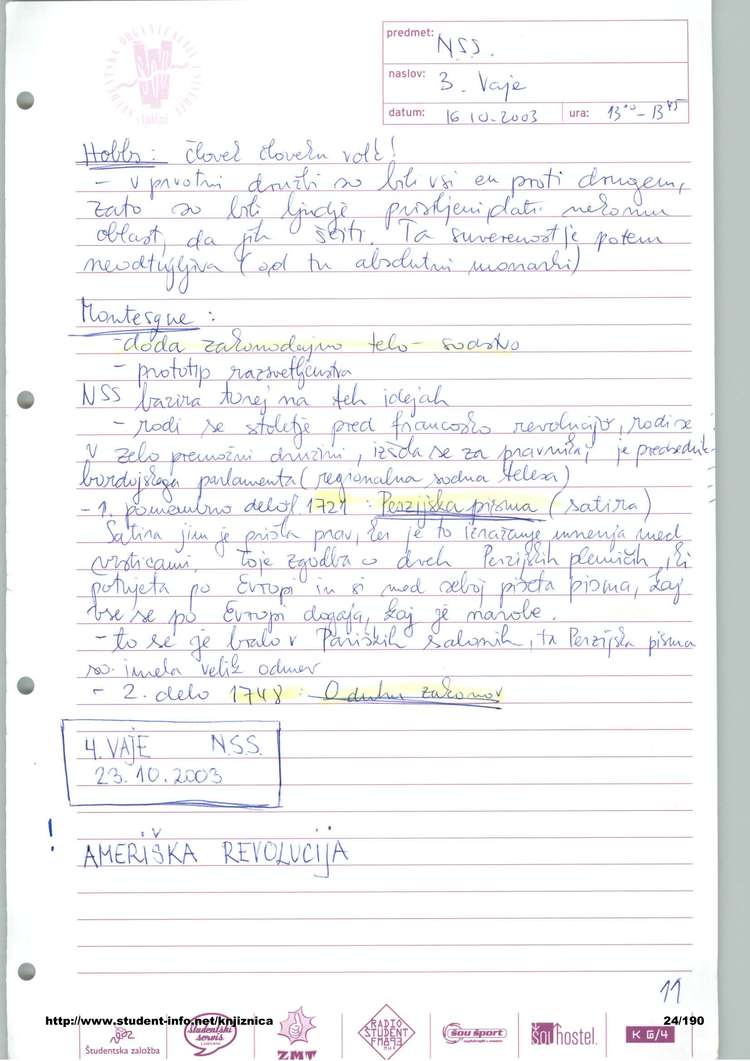 predmet: NSS.
naslov: 3. Vaje
datum: 16 10.2003 ura: 13⁰⁰ - 13⁴⁵
Hobbs: človek človeku volk!
- v prvotni družbi so bili vsi en proti drugem,
zato so bili ljudje prisiljeni dati nekomu
oblast, da jih ščiti. Ta suverenost je potem
neodtujljiva (od tu absolutni monarhi)
Montesque:
- doda zakonodajno telo - sodstvo
- prototip razsvetljenstva
NSS bazira torej na teh idejah
- rodi se stoletje pred francosko revolucijo, rodi se
v zelo premožni družini, izšola se za pravnika, je predsednik
bordojskega parlamenta (regionalna sodna telesa)
- 1. pomembno delo 1721: Perzijska pisma (satira)
Satira jim je prišla prav, ker je to izražanje mnenja med
vrsticami. To je zgodba o dveh Perzijskih plemičih, ki
potujeta po Evropi in si med seboj pišeta pisma, kaj
vse se po Evropi dogaja, kaj je narobe.
- to se je bralo v Pariških salonih, ta Perzijska pisma
so imela velik odmev
- 2. delo 1748: O duhu zakonov
4. VAJE N.S.S.
23.10.2003
!
AMERIŠKA REVOLUCIJA
11
http://www.student-info.net/knjiznica 24/190
Študentska založba
študentski servis
ZMT
RADIO ŠTUDENT FM 89,3 MHz
šou šport
šouhostel.
K 6/4